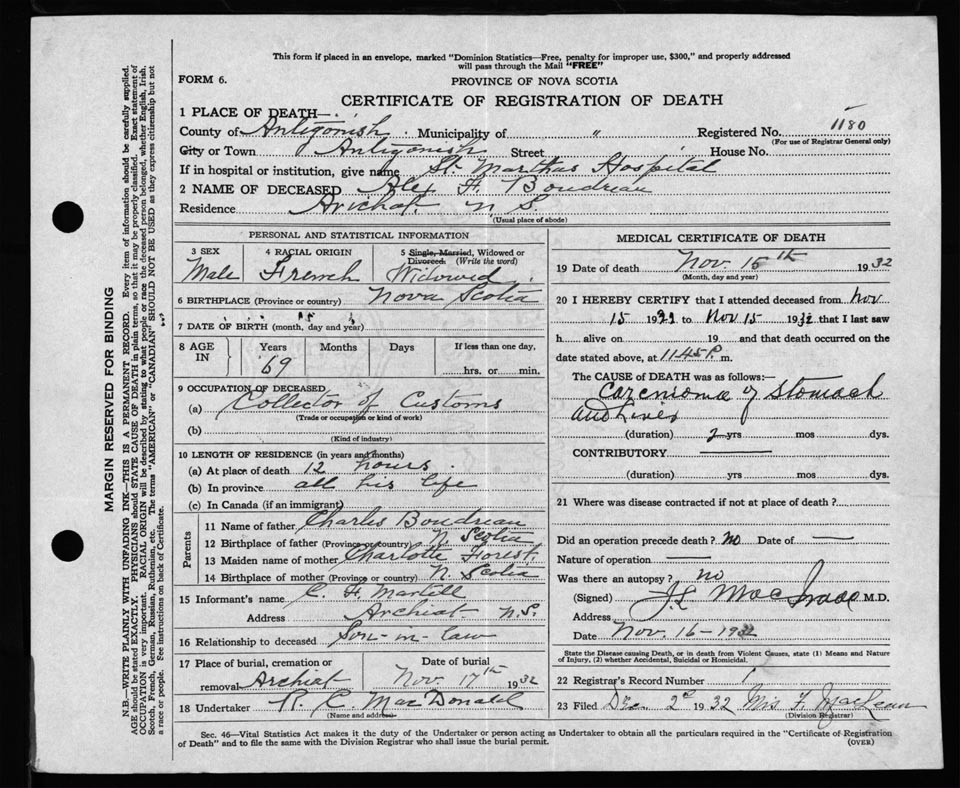 This form if placed in an envelope, marked "Dominion Statistics—Free, penalty for improper use, $300," and properly addressed
will pass through the Mail "FREE"
FORM 6.
PROVINCE OF NOVA SCOTIA
CERTIFICATE OF REGISTRATION OF DEATH
1 PLACE OF DEATH—
County of Antigonish Municipality of " Registered No. 1180
(For use of Registrar General only)
City or Town Antigonish Street House No.
If in hospital or institution, give name St. Marthas Hospital
2 NAME OF DECEASED Alex F. Boudreau
Residence Arichat. N S
(Usual place of abode)
PERSONAL AND STATISTICAL INFORMATION
3 SEX Male
4 RACIAL ORIGIN French
5 Single, Married, Widowed or Divorced. (Write the word) Widowed
6 BIRTHPLACE (Province or country) Nova Scotia
7 DATE OF BIRTH (month, day and year)
8 AGE IN Years 69 Months Days If less than one day, hrs. or min.
9 OCCUPATION OF DECEASED
(a) Collector of Customs
(Trade or occupation or kind of work)
(b)
(Kind of industry)
10 LENGTH OF RESIDENCE (in years and months)
(a) At place of death 12 hours.
(b) In province all his life
(c) In Canada (if an immigrant)
Parents
11 Name of father Charles Boudreau
12 Birthplace of father (Province or country) N. Scotia
13 Maiden name of mother Charlotte Forest.
14 Birthplace of mother (Province or country) N. Scotia
15 Informant's name C. F. Martell
Address Archiat N.S.
16 Relationship to deceased Son-in-law
17 Place of burial, cremation or removal Archiat
Date of burial Nov. 17th 1932
18 Undertaker R. C. MacDonald
(Name and address)
MEDICAL CERTIFICATE OF DEATH
19 Date of death Nov 15th 1932
(Month, day and year)
20 I HEREBY CERTIFY that I attended deceased from Nov
15 1932 to Nov 15 1932 that I last saw
h alive on 19 and that death occurred on the
date stated above, at 11.45 P. m.
The CAUSE of DEATH was as follows:—
Carcinoma of Stomach
and Liver
(duration) 2 yrs mos dys.
CONTRIBUTORY —
(duration) yrs mos dys.
21 Where was disease contracted if not at place of death?
Did an operation precede death? no Date of —
Nature of operation —
Was there an autopsy? no
(Signed) M.D.
Address
Date Nov. 16-1932
State the Disease causing Death, or in death from Violent Causes, state (1) Means and Nature
of Injury, (2) whether Accidental, Suicidal or Homicidal.
22 Registrar's Record Number
23 Filed Dec. 2d 1932 Mrs. F. MacLean
(Division Registrar)
Sec. 46—Vital Statistics Act makes it the duty of the Undertaker or person acting as Undertaker to obtain all the particulars required in the "Certificate of Registration
of Death" and to file the same with the Division Registrar who shall issue the burial permit.
(OVER)
MARGIN RESERVED FOR BINDING
N.B.—WRITE PLAINLY WITH UNFADING INK—THIS IS A PERMANENT RECORD. Every item of information should be carefully supplied.
AGE should be stated EXACTLY. PHYSICIANS should STATE CAUSE OF DEATH in plain terms, so that it may be properly classified. Exact statement of
OCCUPATION is very important. RACIAL ORIGIN will be described by stating to what people or race the deceased person belonged, whether English, Irish,
Scotch, French, German, Russian, Ruthenian, etc. The terms "AMERICAN" or "CANADIAN" SHOULD NOT BE USED as they express citizenship but not
a race or people. See instructions on back of Certificate.